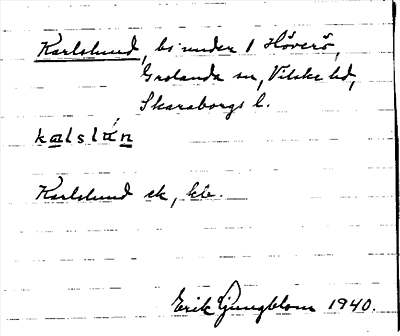 Karlslund, bs under 1 Höverö,
Grolanda sn, Vilske hd,
Skaraborgs l.
kalslún
Karlslund ek, kb.
Erik Ljungblom 1940.